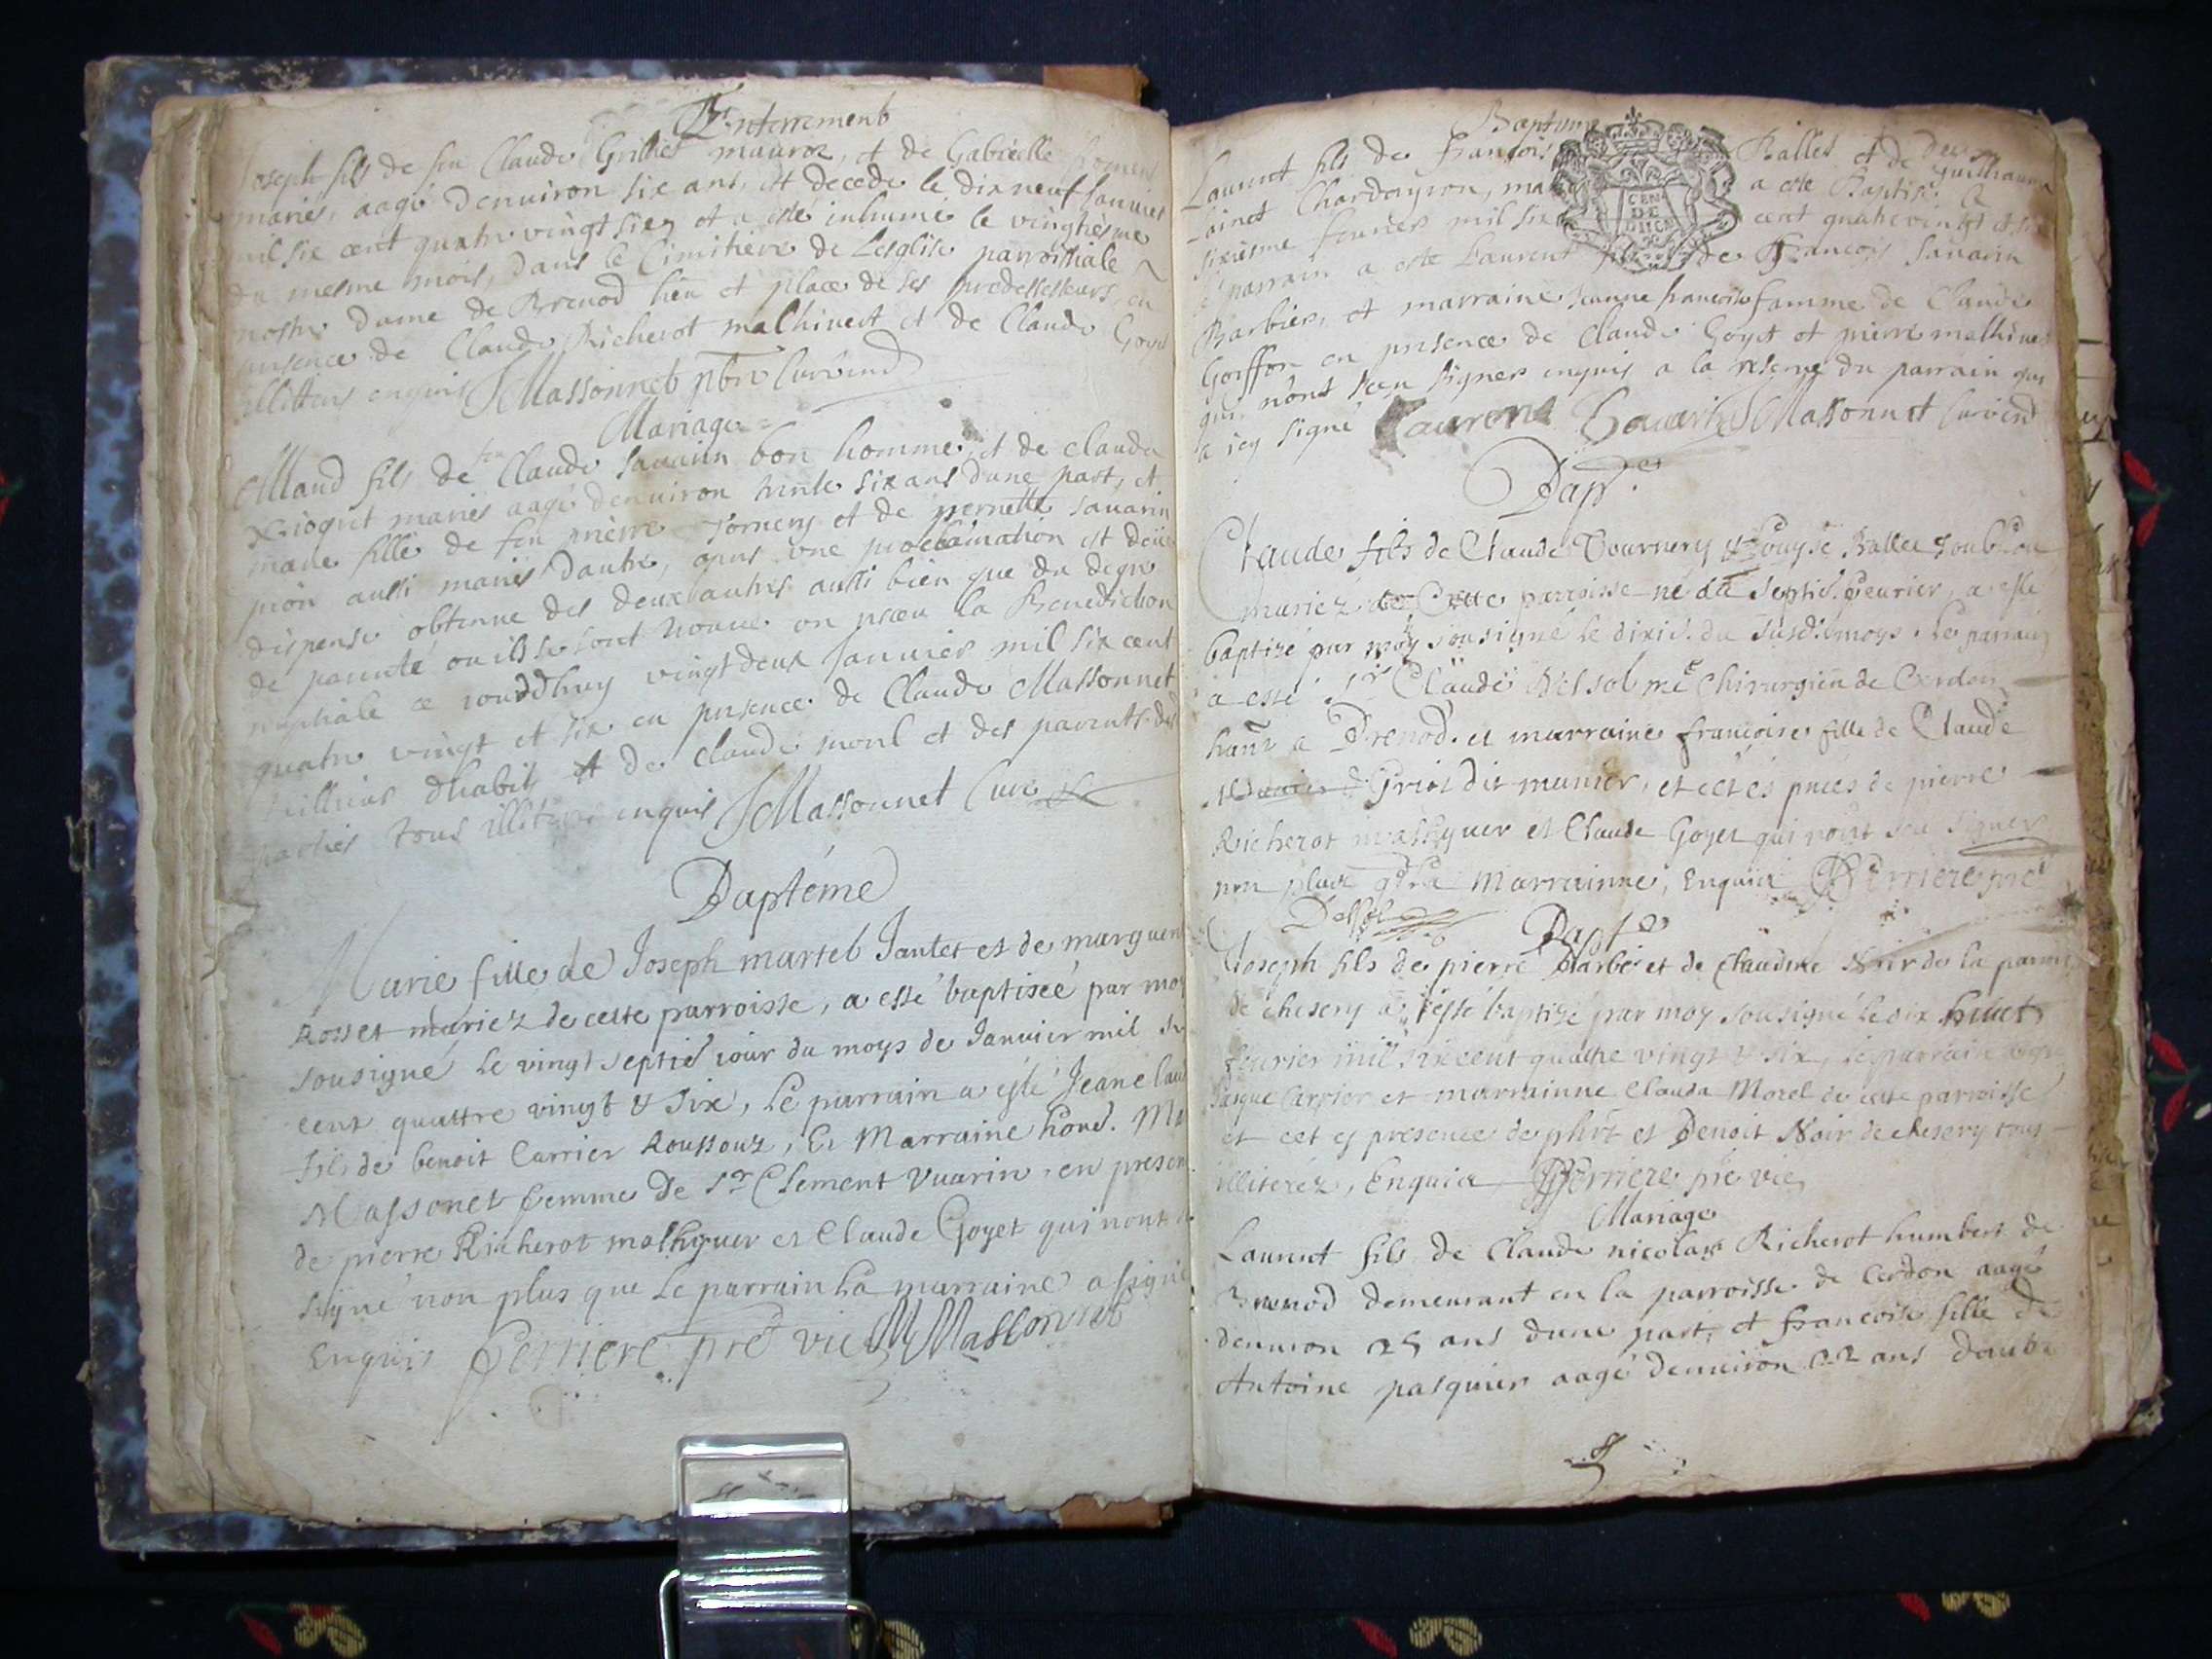 Enterrement
Joseph fils de feu Claude Grillet mauroz, et de Gabrielle
mariés, aagé denuiron six ans, est decede le dix neuf Januier
mil six cent quatre vingt six et a esté inhumé le vingtiesme
du mesme mois, dans le Cimitiere de Lesglise parroissiale
nostre dame de Brenod lieu et place de ses predessesseurs, en
presence de Claude Richerot malhinert et de Claude Goyet
illitterés enquis JMassonnet pbre Cur
Mariage
fils de feu Claude Sauarin bon homme, et de clauda
mariés aagé denuiron trente six ans dune part, et
fille de feu pierre Tornery et de pernette Sauarin
aussi mariés dautre, apres une proclamation et deüe
dispense obtenue des deux autres aussi bien que du degre
de parenté ou ils se sont trouue on receu la Benediction
nuptiale ce jourdhuy vingt deux Januier mil six cent
quatre vingt et six en presence de Claude Massonnet
dhabit et de claude morel et des parents des
parties tous illiterés enquis JMassonnet Cure
Baptéme
Marie fille de Joseph martel Jantet et de marguer
Rosset mariez de cette parroisse, a esté baptiseé par moy
sousigné le vingt septie jour du moys de Januier mil six
cent quattre vingt & six, Le parrain a esté Jeanclau
fils de benoit Carrier Roussouz, Et Marraine hond. Ma
Massonet femme de Sr Clement Vuarin, en presen
de pierre Richerot malhyuer et Claude Goyet qui nont
signé non plus que le parrain La marraine a signé
Enquis Perriere pre vic M Massonnet
Baptesme
Laurent fils de francois Balles et de
Chardeyron, a este Baptisé le
sixiesme feurier mil six cent quatre vingt et six
le parrain a este Laurent fils de François Sauarin
Barbier, et marraine Jeanne francoise famme de Claude
Goiffon en presence de Claude Goyet et pierre malhiuer
qui nont sceu signer enquis a la reserue du parrain qui
a icy signé Laurent Sauarin JMassonnet Cur
Bapt.
Claude fils de Claude Tournery & Louyse Ballet
mariez de Cette parroisse né du septie. feurier, a esté
baptizé par moy sousigné le dixie. du susd. moys. Le parrain
a esté Sr Claude Dessol me Chirurgien de Cerdon
hant a Brenod. et marraine francoise fille de Claude
Griot dit munier, et cét és pnces de pierre
Richerot malhyuer et Claude Goyet qui nont sceu signer
non plus q. La Marrainne, Enquis Perriere pre
Dessol
Bapte
Joseph fils de pierre Barbe et de Claudine Noir de la parroisse
de chesery a esté baptizé par moy sousigné le dix huict
feurier mil six cent quattre vingt & six, Le parrain
Carrier et marrainne Clauda Morel de cette parroisse
et cet es presence de et Benoit Noir de chesery tous
illiterez, Enquis Perriere pre vic
Mariage
Laurent fils de Claude nicolas Richerot humbert de
Brenod demeurant en la parroisse de Cerdon aagé
denuiron 25 ans dune part, et francoise fille de
Antoine pasquier aagé denuiron 22 ans dautre